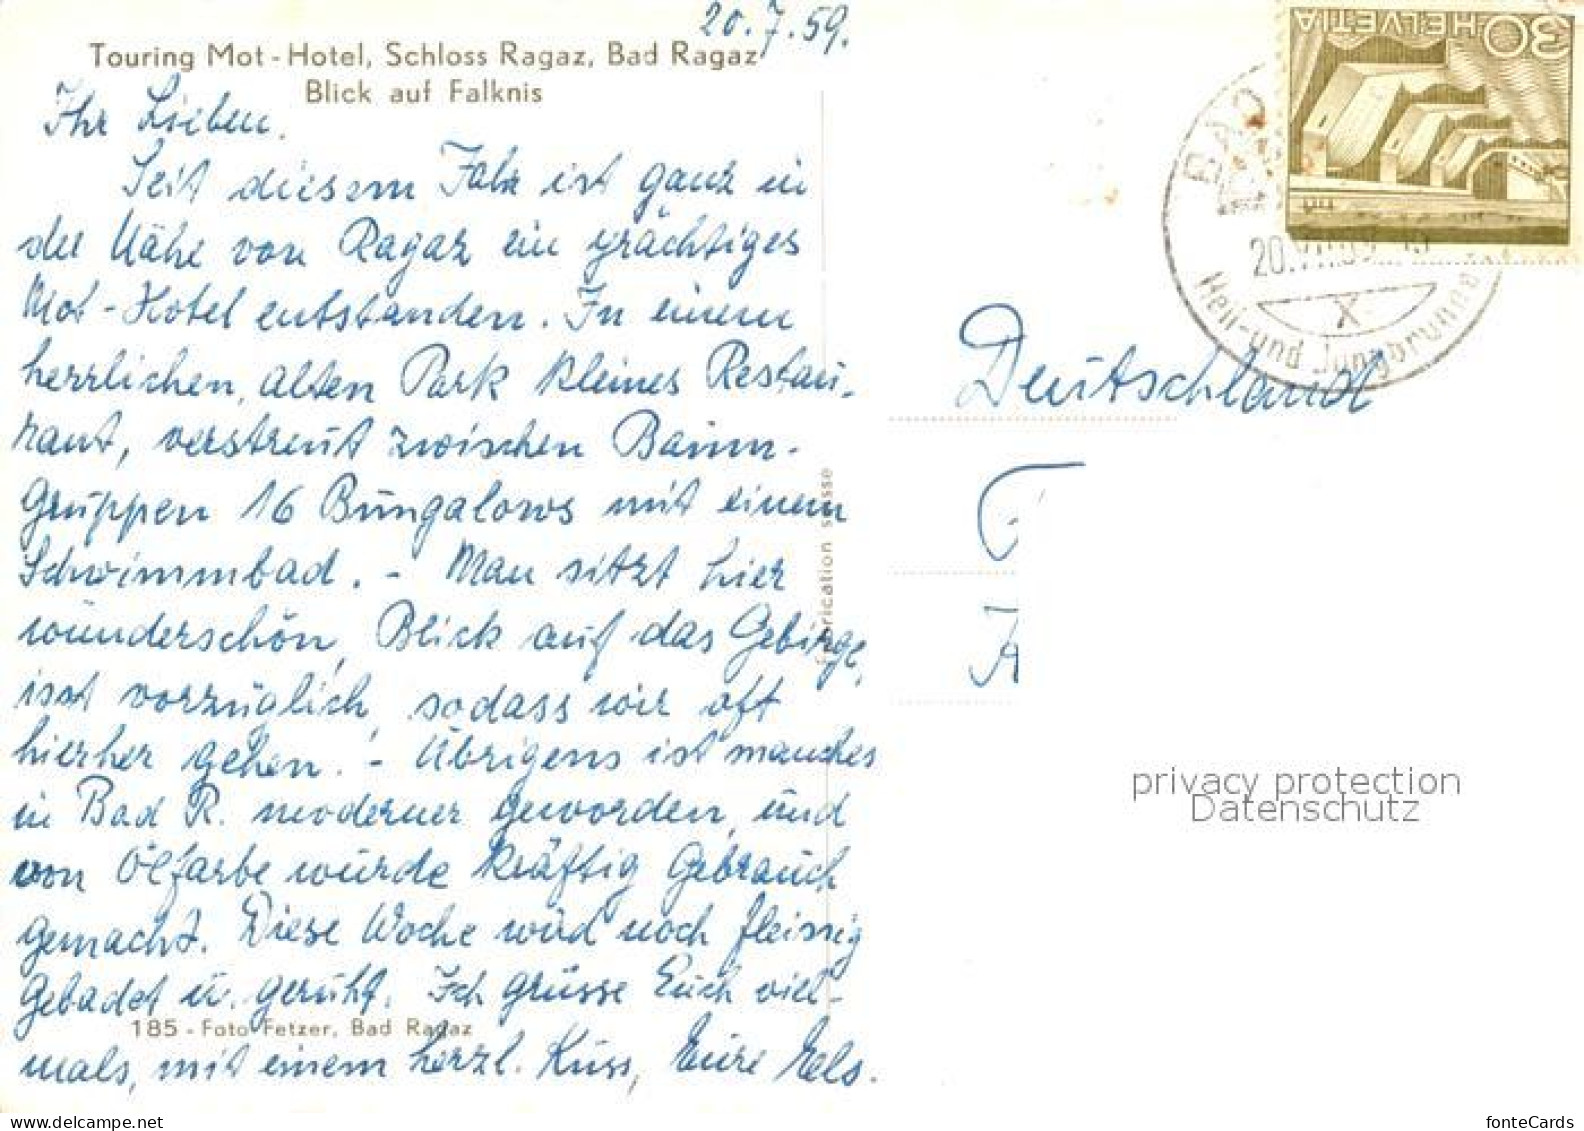 20.7.59.
Touring Mot-Hotel, Schloss Ragaz, Bad Ragaz
Blick auf Falknis
Ihr Lieben.
Seit diesem Jahr ist ganz in
der Nähe von Ragaz ein prächtiges
Mot-Hotel entstanden. In einem
herrlichen, alten Park kleines Restau-
rant, verstreut zwischen Baum-
Gruppen 16 Bungalows mit einem
Schwimmbad. - Man sitzt hier
wunderschön, Blick auf das Gebirge,
isst vorzüglich, sodass wir oft
hierher gehen. - Übrigens ist manches
in Bad R. moderner geworden, und
von Ölfarbe wurde kräftig Gebrauch
gemacht. Diese Woche wird noch fleissig
Gebadet u. geruht. Ich grüsse Euch viel-
185 - Foto Fetzer, Bad Ragaz
mals, mit einem herzl. Kuss, Eure Els.
Fabrication suisse
30 HELVETIA
BAD
20.VII.59
Heil- und Jungbrunnen
X
Deutschland
privacy protection
Datenschutz
fonteCards